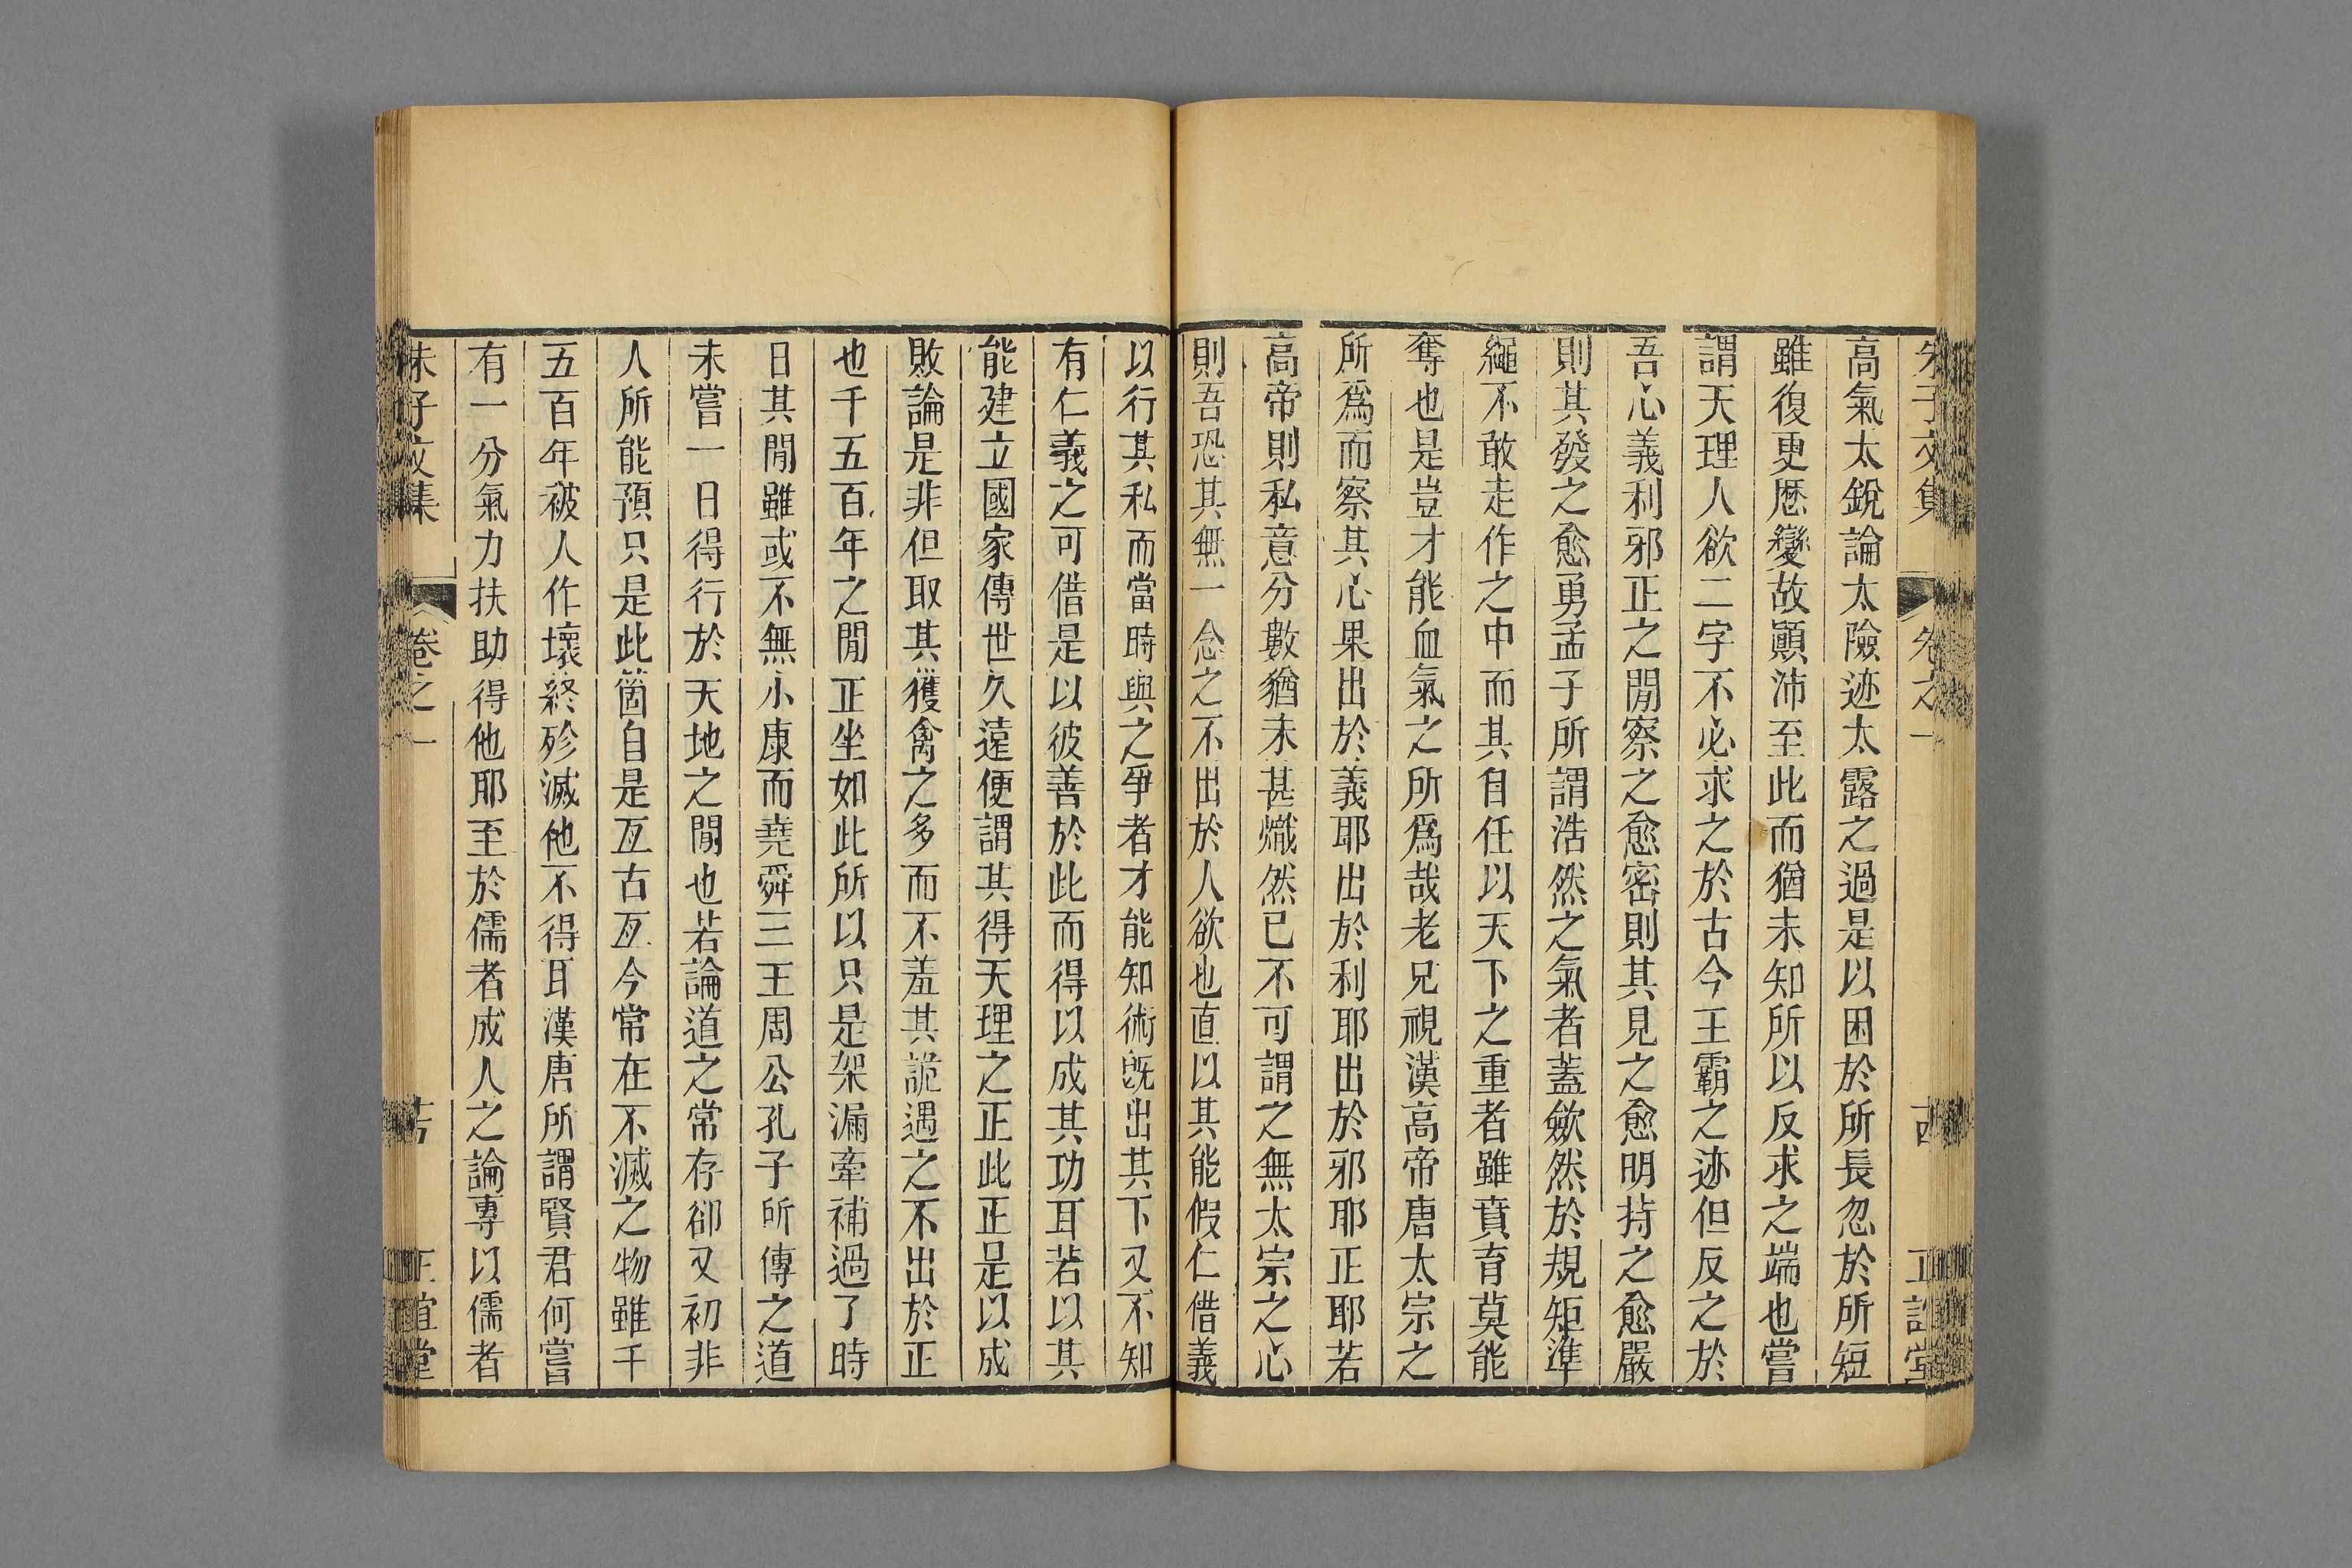 朱子文集 卷之一 正誼堂
高氣太銳論太險迹太露之過是以困於所長忽於所短
雖復更歷變故顚沛至此而猶未知所以反求之端也嘗
謂天理人欲二字不必求之於古今王霸之迹但反之於
吾心義利邪正之閒察之愈密則其見之愈明持之愈嚴
則其發之愈勇孟子所謂浩然之氣者蓋歛然於規矩準
繩不敢走作之中而其自任以天下之重者雖賁育莫能
奪也是豈才能血氣之所爲哉老兄視漢高帝唐太宗之
所爲而察其心果出於義耶出於利耶出於邪耶正耶若
高帝則私意分數猶未甚熾然已不可謂之無太宗之心
則吾恐其無一念之不出於人欲也直以其能假仁借義
以行其私而當時與之爭者才能知術旣出其下又不知
有仁義之可借是以彼善於此而得以成其功耳若以其
能建立國家傳世久遠便謂其得天理之正此正是以成
敗論是非但取其獲禽之多而不羞其詭遇之不出於正
也千五百年之閒正坐如此所以只是架漏牽補過了時
日其閒雖或不無小康而堯舜三王周公孔子所傳之道
未嘗一日得行於天地之閒也若論道之常存卻又初非
人所能預只是此箇自是亙古亙今常在不滅之物雖千
五百年被人作壞終殄滅他不得耳漢唐所謂賢君何嘗
有一分氣力扶助得他耶至於儒者成人之論專以儒者
朱子文集 卷之一 正誼堂